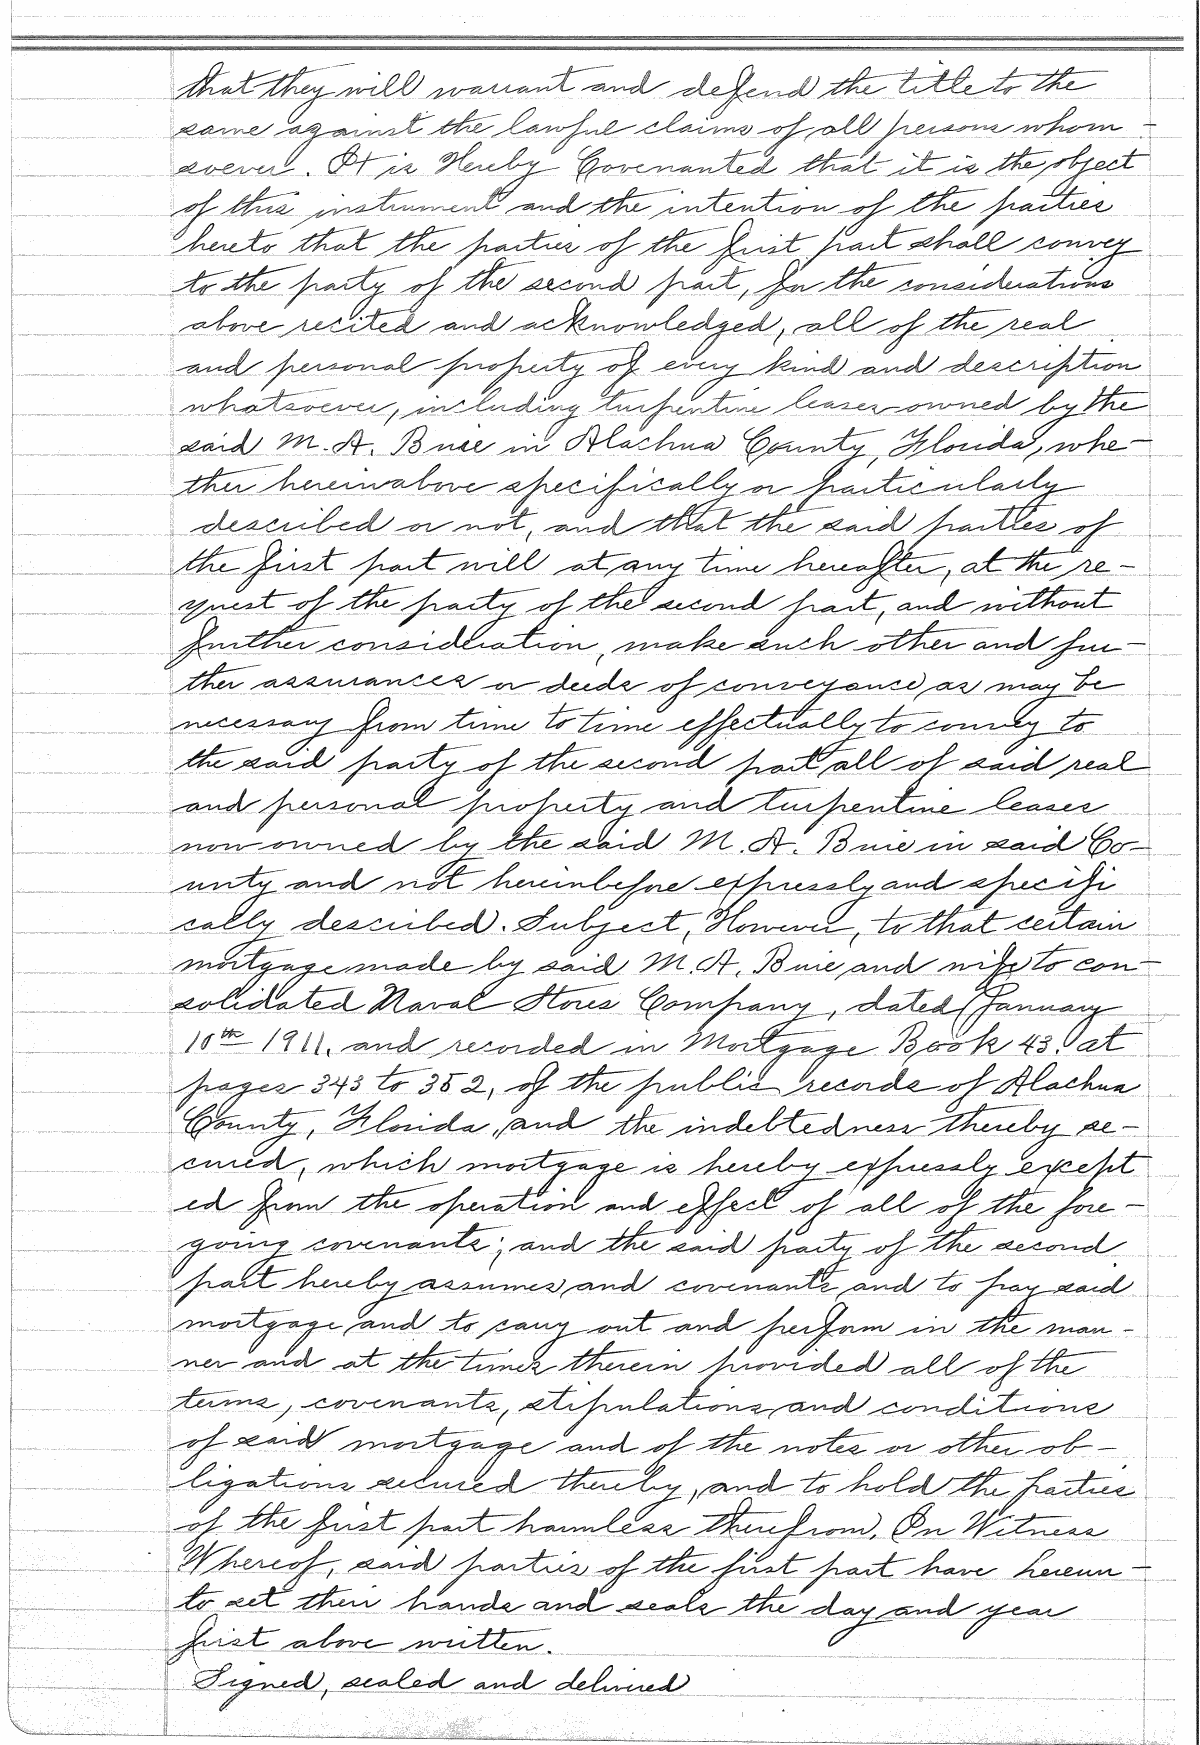 that they will warrant and defend the title to the
same against the lawful claims of all persons whom-
soever. It is Hereby Covenanted that it is the object
of this instrument and the intention of the parties
hereto that the parties of the first part shall convey
to the party of the second part, for the considerations
above recited and acknowledged, all of the real
and personal property of every kind and description
whatsoever, including turpentine leases owned by the
said M. A. Buie in Alachua County, Florida, whe-
ther hereinabove specifically or particularly
described or not, and that the said parties of
the first part will at any time hereafter, at the re-
quest of the party of the second part, and without
further consideration, make such other and fur-
ther assurances or deeds of conveyance as may be
necessary from time to time effectually to convey to
the said party of the second part all of said real
and personal property and turpentine leases
now owned by the said M. A. Buie in said Co-
unty and not hereinbefore expressly and specifi
cally described. Subject, However, to that certain
mortgage made by said M. A. Buie and wife to con-
solidated Naval Stores Company, dated January
10th 1911, and recorded in Mortgage Book 43, at
pages 343 to 352, of the public records of Alachua
County, Florida, and the indebtedness thereby se-
cured, which mortgage is hereby expressly except
ed from the operation and effect of all of the fore-
going covenants; and the said party of the second
part hereby assumes and covenants and to pay said
mortgage and to carry out and perform in the man-
ner and at the times therein provided all of the
terms, covenants, stipulations and conditions
of said mortgage and of the notes or other ob-
ligations secured thereby, and to hold the parties
of the first part harmless therefrom. In Witness
Whereof, said parties of the first part have hereun-
to set their hands and seals the day and year
first above written.
Signed, sealed and delivered